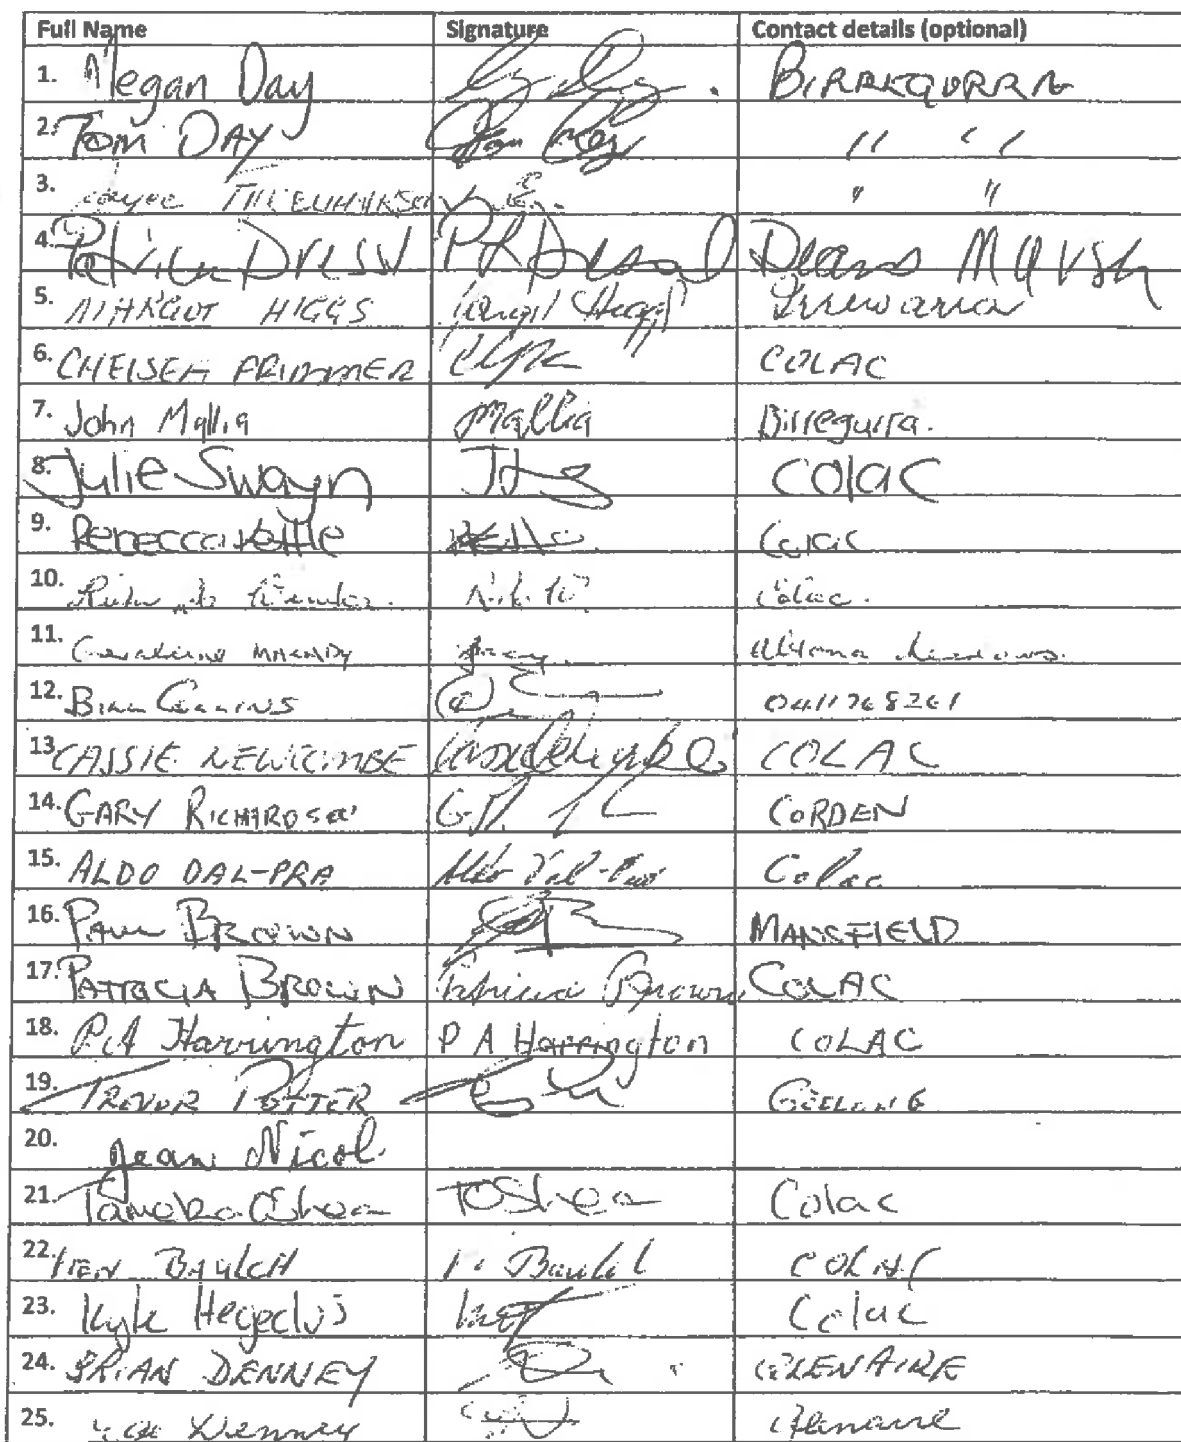 Full Name Signature Contact details (optional)
1. Megan Day BIRREGURRA
2. Tom DAY " "
3. " "
4. Deans Marsh
5. MARGOT HIGGS Irrewarra
6. CHELSEA PRIMMER COLAC
7. John Mallia Mallia Birregurra.
8. Julie Swayn COLAC
9. Rebecca Kettle Colac
10. Colac.
11. Geraldine Altona Meadows.
12. BILL COLLINS 0411768261
13. CASSIE NEWCOMBE COLAC
14. GARY RICHARDSON CORDEN
15. ALDO DAL-PRA Aldo Dal-Pra Colac
16. PAUL BROWN MANSFIELD
17. PATRICIA BROWN Patricia Brown COLAC
18. P.A Harrington P A Harrington COLAC
19. TREVOR POTTER GEELONG
20. Jean Nicol.
21. Tameka O'Shea TOShea Colac
22. KEN BAULCH COLAC
23. Kyle Hegedus Colac
24. BRIAN DENNEY GLENAIRE
25. Denney Glenaire